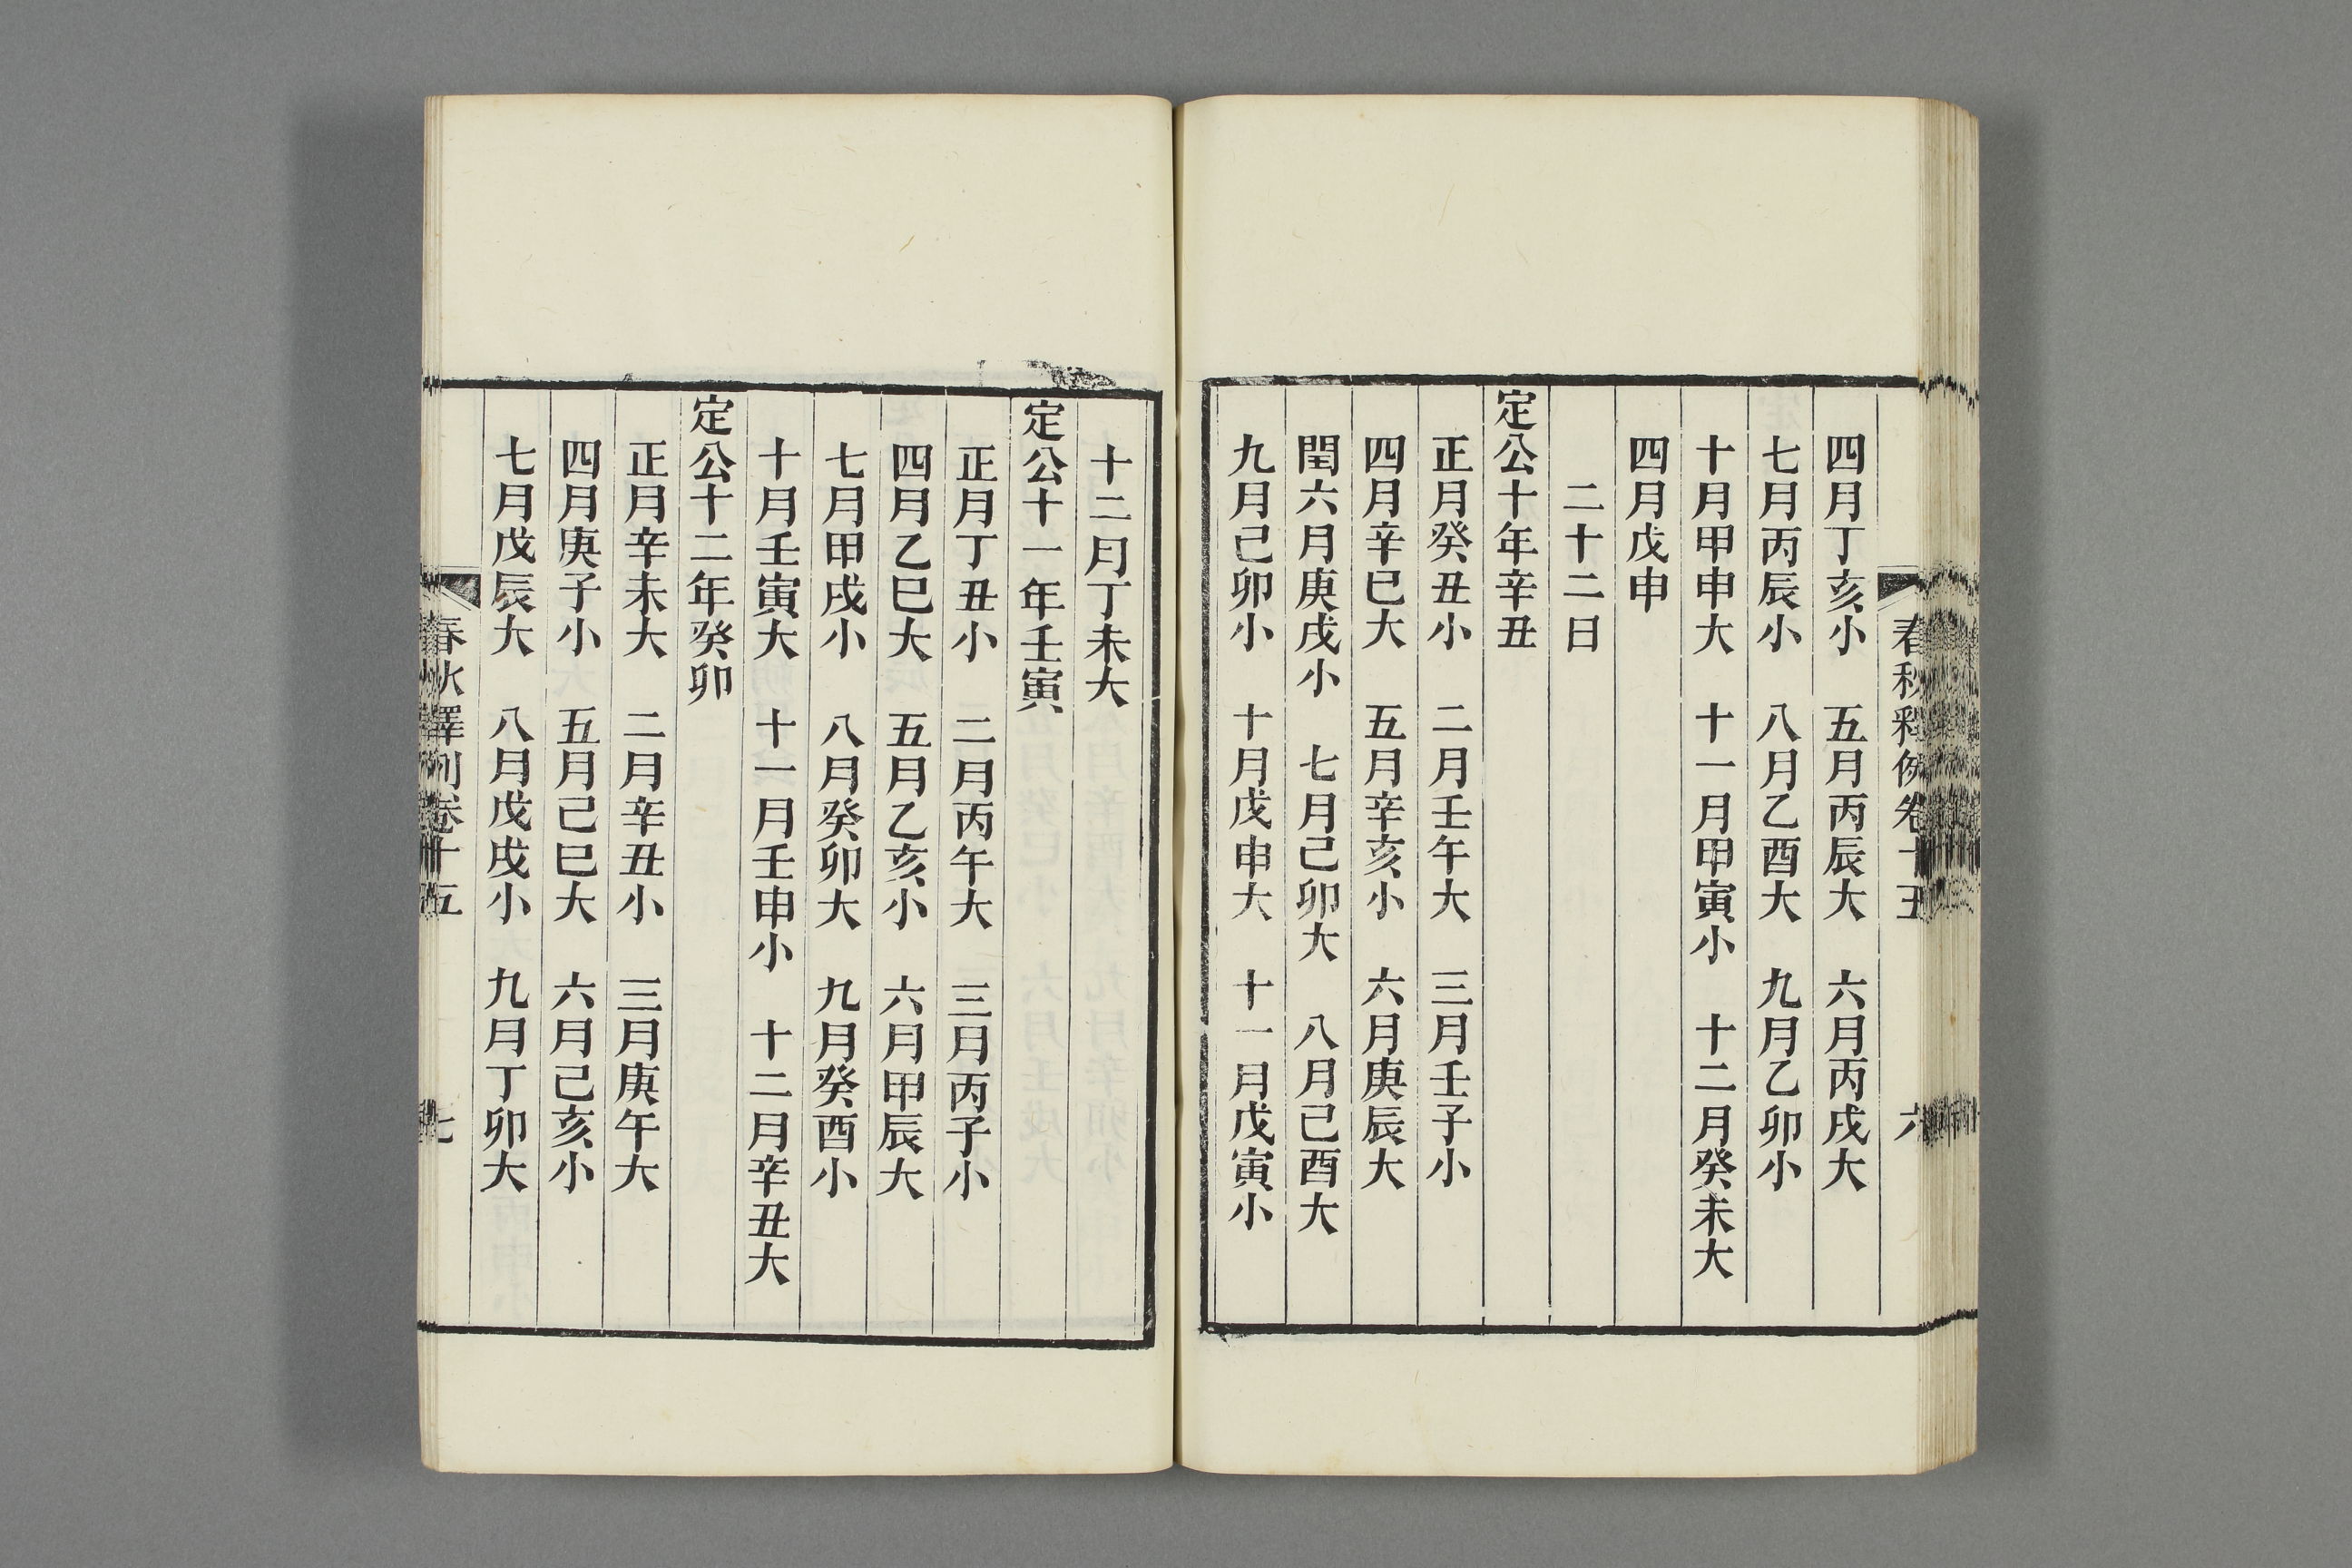 春秋釋例卷十五 六
四月丁亥小 五月丙辰大 六月丙戌大
七月丙辰小 八月乙酉大 九月乙卯小
十月甲申大 十一月甲寅小 十二月癸未大
四月戊申
二十二日
定公十年辛丑
正月癸丑小 二月壬午大 三月壬子小
四月辛巳大 五月辛亥小 六月庚辰大
閏六月庚戌小 七月己卯大 八月己酉大
九月己卯小 十月戊申大 十一月戊寅小
十二月丁未大
定公十一年壬寅
正月丁丑小 二月丙午大 三月丙子小
四月乙巳大 五月乙亥小 六月甲辰大
七月甲戌小 八月癸卯大 九月癸酉小
十月壬寅大 十一月壬申小 十二月辛丑大
定公十二年癸卯
正月辛未大 二月辛丑小 三月庚午大
四月庚子小 五月己巳大 六月己亥小
七月戊辰大 八月戊戌小 九月丁卯大
春秋釋例卷十五 七